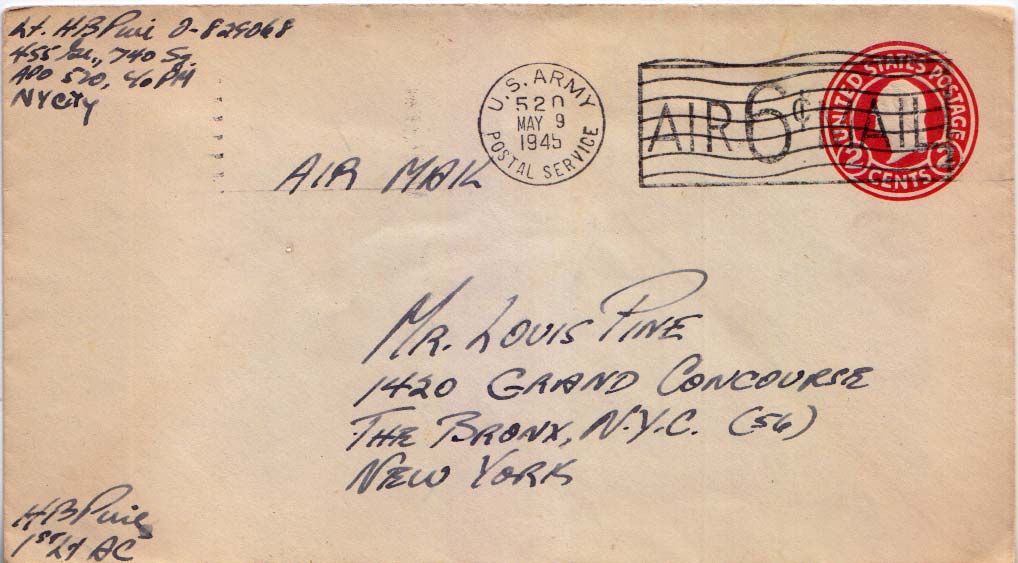 Lt. HB Pine O-829068
455 Gr., 740 Sq.
APO 520, c/o PM
NY City
U.S. ARMY
520
MAY 9
1945
POSTAL SERVICE
AIR 6¢ MAIL
UNITED STATES POSTAGE
2 CENTS 2
AIR MAIL
MR. LOUIS PINE
1420 GRAND CONCOURSE
THE BRONX, N.Y.C. (56)
NEW YORK
HB Pine
1st Lt AC